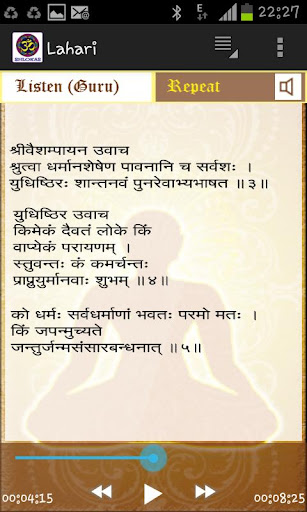 22:27
SHLOKAS
Lahari
Listen (Guru)
Repeat
श्रीवैशम्पायन उवाच
श्रुत्वा धर्मानशेषेण पावनानि च सर्वशः ।
युधिष्ठिरः शान्तनवं पुनरेवाभ्यभाषत ॥३॥
युधिष्ठिर उवाच
किमेकं दैवतं लोके किं
वाप्येकं परायणम् ।
स्तुवन्तः कं कमर्चन्तः
प्राप्नुयुर्मानवाः शुभम् ॥४॥
को धर्मः सर्वधर्माणां भवतः परमो मतः ।
किं जपन्मुच्यते
जन्तुर्जन्मसंसारबन्धनात् ॥५॥
00:04:15
00:08:25